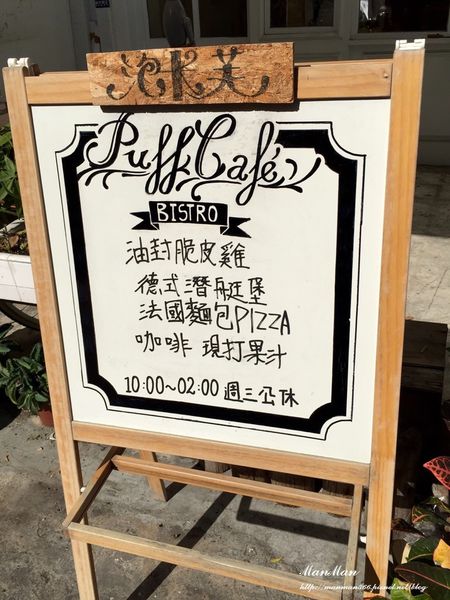 泡芙
Puff Café
BISTRO
油封脆皮雞
德式潛艇堡
法國麵包PIZZA
咖啡 現打果汁
10:00~02:00 週三公休
ManMan
http://manman366.pixnet.net/blog